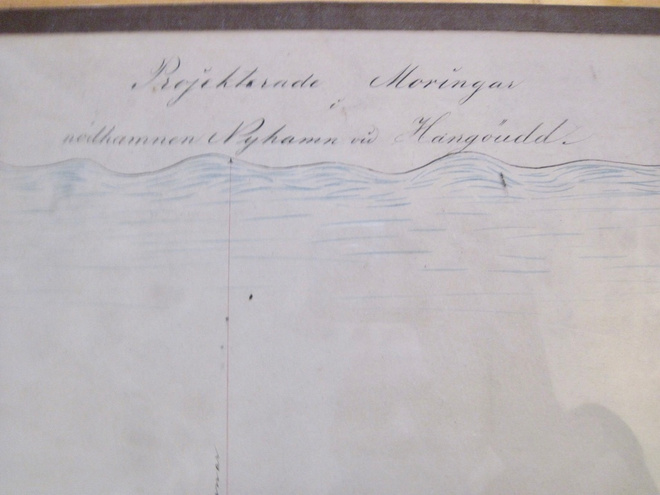 Projekterade Moringar
i
nödhamnen Nyhamn vid Hangöudd.